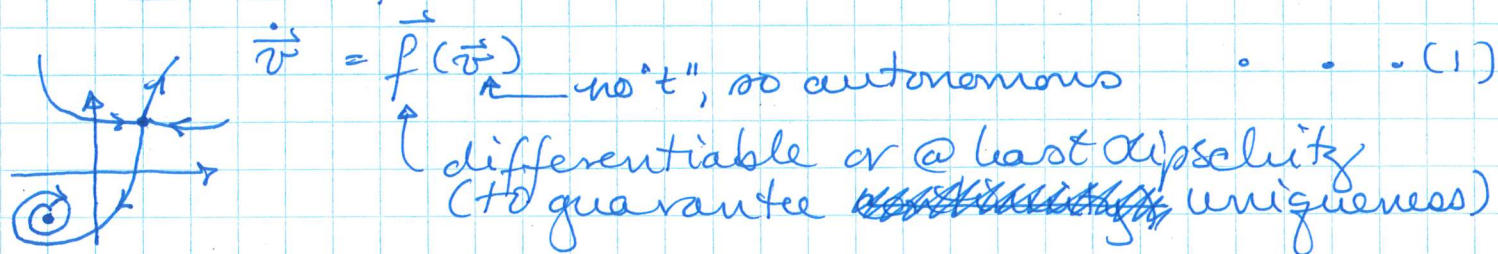 \dot{\vec{v}} = \vec{f}(\vec{v}) . . . (1)
no "t", so autonomous
differentiable or @ least Lipschitz
(to guarantee uniqueness)